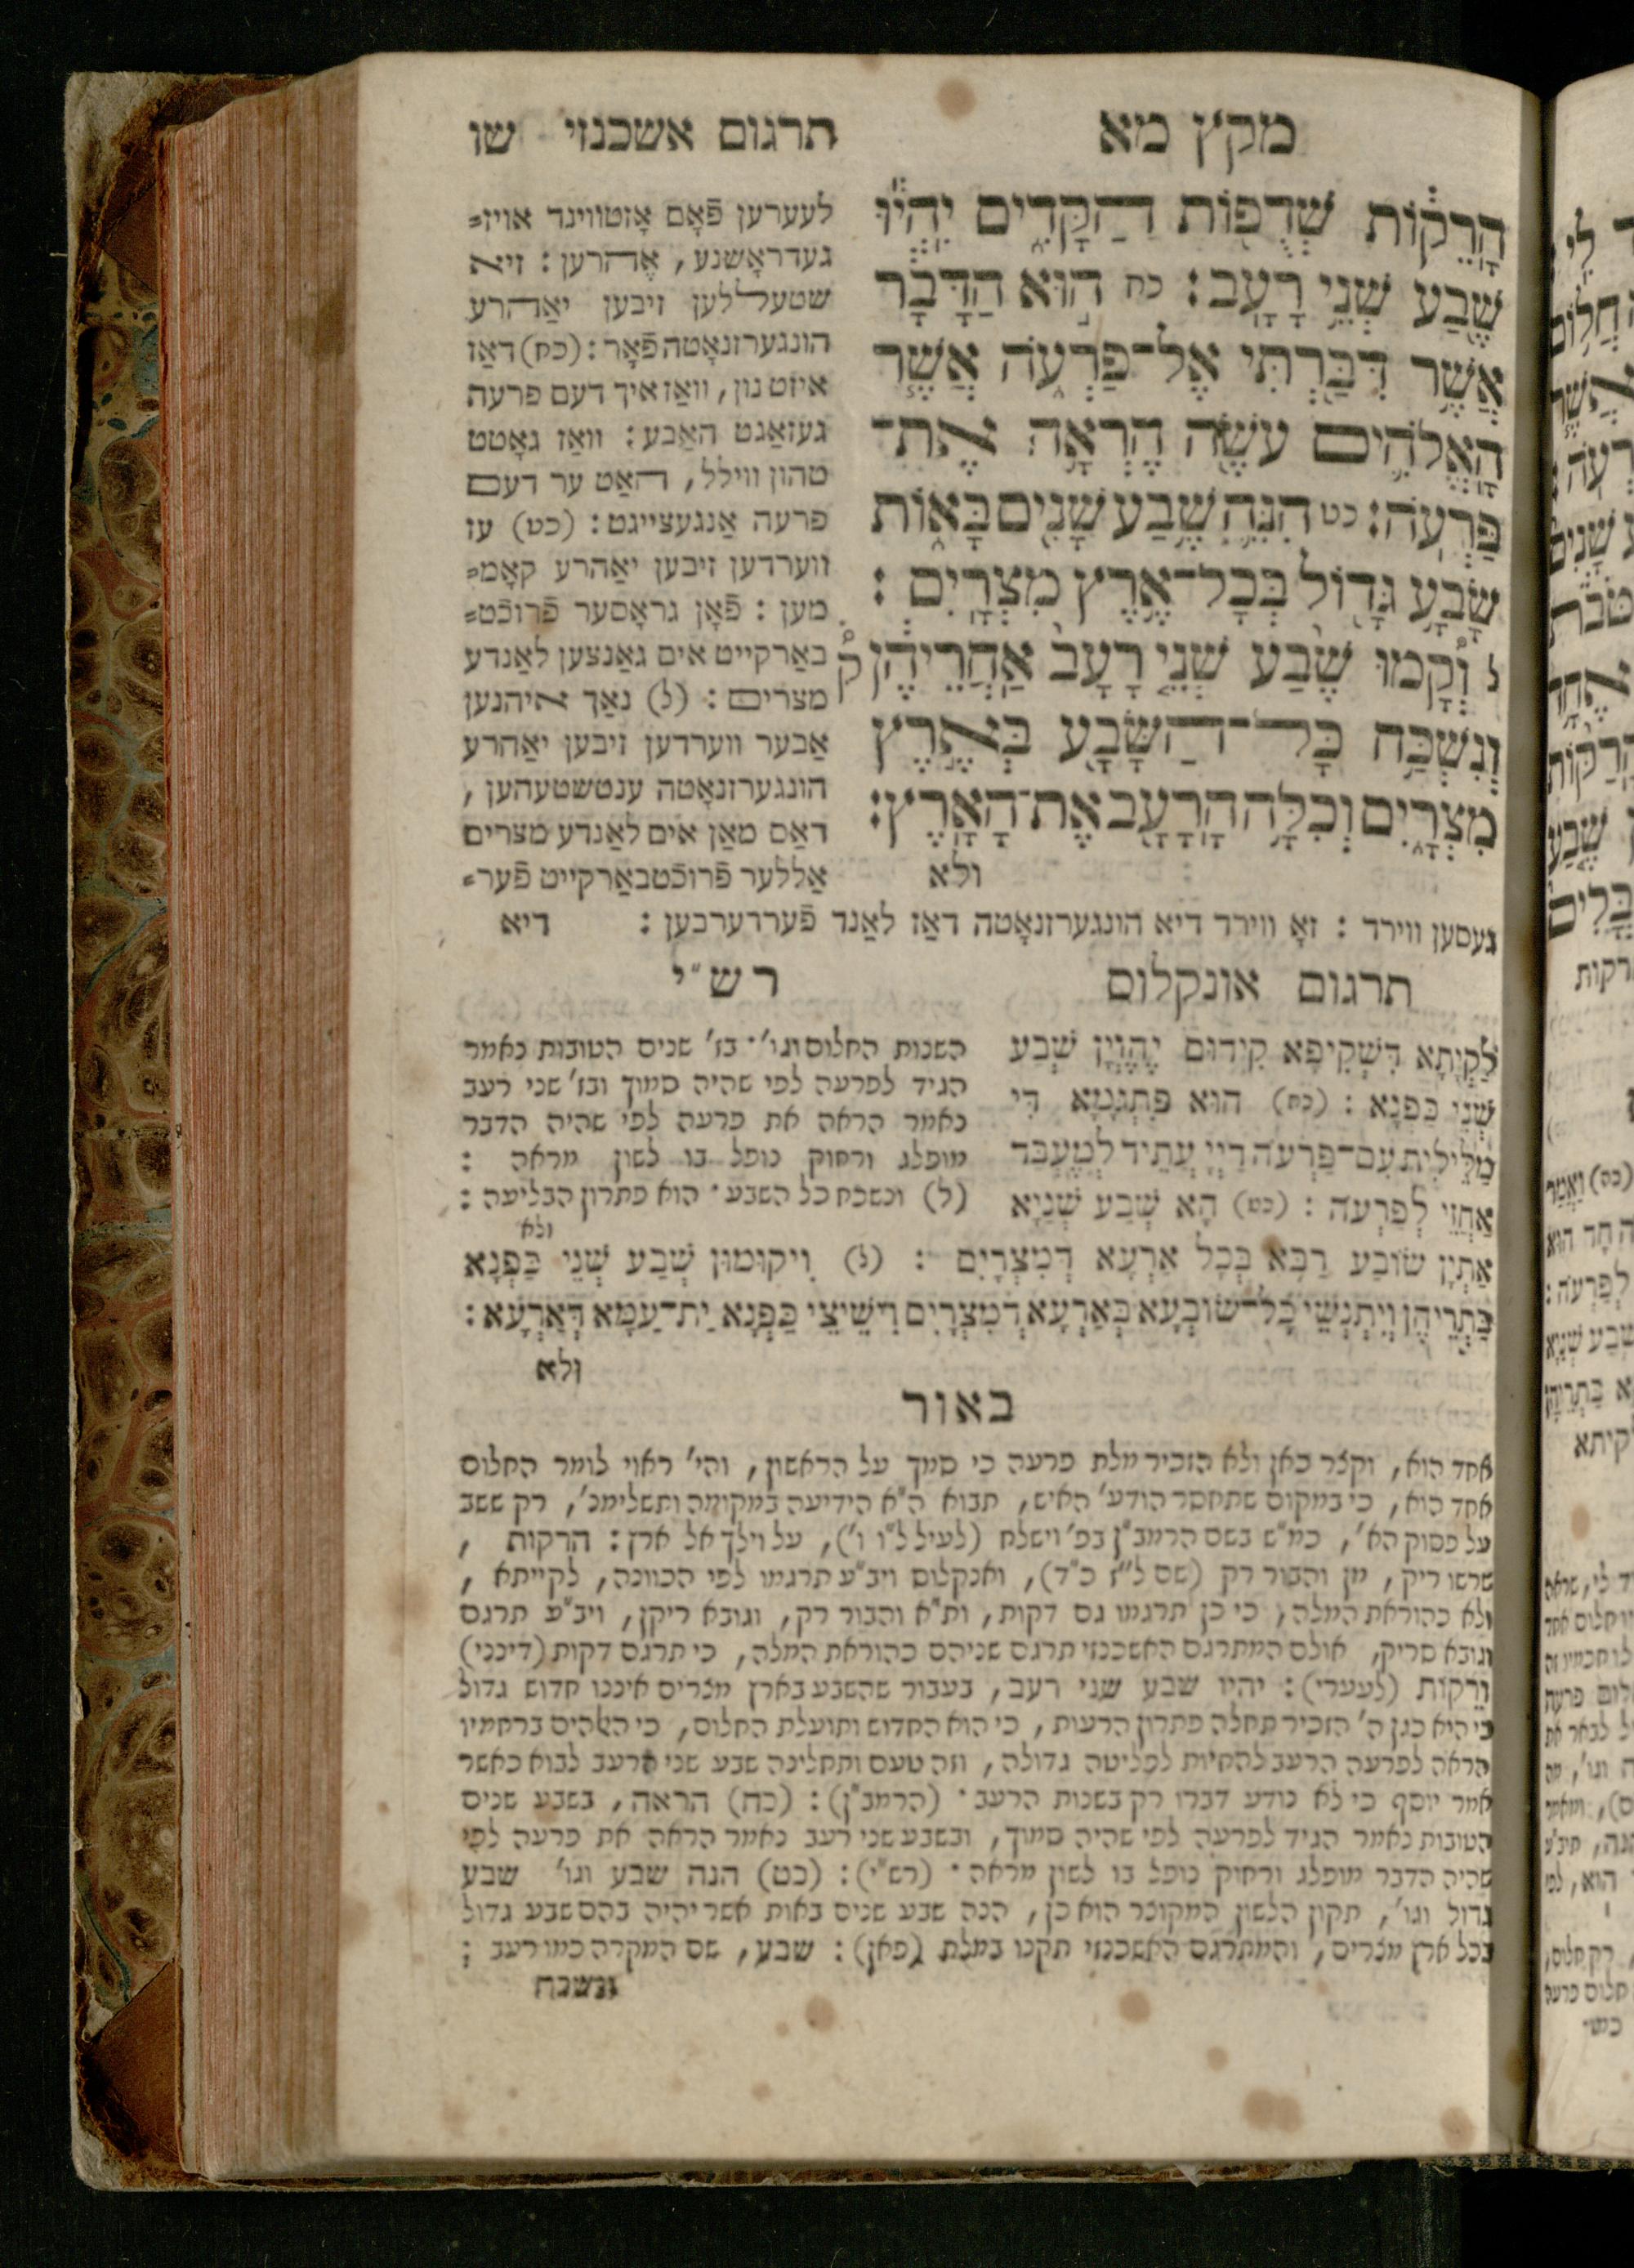 מקץ מא
תרגום אשכנזי שו
הָרֵק֔וֹת שְׁדֻפ֖וֹת הַקָּדִ֑ים יִֽהְי֕וּ
שֶׁ֖בַע שְׁנֵ֥י רָעָֽב׃ כח ה֣וּא הַדָּבָ֔ר
אֲשֶׁ֥ר דִּבַּ֖רְתִּי אֶל־פַּרְעֹ֑ה אֲשֶׁ֧ר
הָאֱלֹהִ֛ים עֹשֶׂ֖ה הֶרְאָ֥ה אֶת־
פַּרְעֹֽה׃ כט הִנֵּ֛ה שֶׁ֥בַע שָׁנִ֖ים בָּא֑וֹת
שָׂבָ֥ע גָּד֖וֹל בְּכָל־אֶ֥רֶץ מִצְרָֽיִם׃
ל וְ֠קָמוּ שֶׁ֜בַע שְׁנֵ֤י רָעָב֙ אַחֲרֵיהֶ֔ן
וְנִשְׁכַּ֥ח כָּל־הַשָּׂבָ֖ע בְּאֶ֣רֶץ
מִצְרָ֑יִם וְכִלָּ֥ה הָרָעָ֖ב אֶת־הָאָֽרֶץ׃
ולא
לעערען פֿאָם אָזטווינד אויז=
געדראָשנע, אֶהרען: זיא
שטעללען זיבען יאַהרע
הונגערזנאָטה פֿאָר: (כח) דאַז
איזט נון, וואַז איך דעם פרעה
געזאַגט האַבע: וואַז גאָטט
טהון ווילל, האַט ער דעם
פרעה אַנגעצייגט: (כט) עז
ווערדען זיבען יאַהרע קאָמ=
מען: פֿאָן גראָסער פֿרוכֿט=
באַרקייט אים גאַנצען לאַנדע
מצרים: (ל) נאַך איהנען
אַבער ווערדען זיבען יאַהרע
הונגערזנאָטה ענטשטעהען,
דאַס מאַן אים לאַנדע מצרים
אַללער פֿרוכֿטבאַרקייט פֿער=
געסען ווירד: זאָ ווירד דיא הונגערזנאָטה דאַז לאַנד פֿערדערבען: דיא
תרגום אונקלוס
לַקְיָתָא דִּשְׁקִיפָא קִידוּם יֶהֱוְיָן שְׁבַע
שְׁנֵי כַּפְנָא: (כח) הוּא פִּתְגָמָא דִּי
מַלֵּילִית עִם־פַּרְעֹה דַיְיָ עֲתֵיד לְמֶעְבַּד
אַחֲזֵי לְפַרְעֹה: (כט) הָא שְׁבַע שְׁנַיָּא
אַתְיָן שׂוֹבַע רַבָּא בְּכָל אַרְעָא דְּמִצְרָיִם: (ל) וִיקוּמוּן שְׁבַע שְׁנֵי כַּפְנָא
בַּתְרֵיהֶן וְיִתְנְשֵׁי כָּל־שׂוֹבְעָא בְּאַרְעָא דְמִצְרָיִם וִישֵׁיצֵי כַּפְנָא יַת־עַמָּא דְּאַרְעָא:
ולא
רש״י
השנות החלום וגו'. בז' שנים הטובות נאמר
הגיד לפרעה לפי שהיה סמוך ובז' שני רעב
נאמר הראה את פרעה לפי שהיה הדבר
מופלג ורחוק נופל בו לשון מראה:
(ל) ונשכח כל השבע. הוא פתרון הבליעה:
ולא
באור
אחד הוא, וקצר כאן ולא הזכיר מלת פרעה כי סמך על הראשון, והי' ראוי לומר החלום
אחד הוא, כי במקום שתחסר הודע' האיש, תבוא ה"א הידיעה במקומה ותשלימנ', רק ששב
על פסוק הא', כמ"ש בשם הרמב"ן בפ' וישלח (לעיל ל"ו ו'), על וילך אל ארץ: הרקות,
שרשו ריק, מן והבור רק (שם ל"ז כ"ד), ואנקלוס ויב"ע תרגמו לפי הכוונה, לקייתא,
ולא כהוראת המלה, כי כן תרגמו גם דקות, ות"א והבור רק, וגובא ריקן, ויב"ע תרגם
וגובא סריק, אולם המתרגם האשכנזי תרגם שניהם כהוראת המלה, כי תרגם דקות (דיננע)
ורקות (לעערע): יהיו שבע שני רעב, בעבור שהשבע בארץ מצרים איננו חדוש גדול
כי היא כגן ה' הזכיר תחלה פתרון הרעות, כי הוא החדוש ותועלת החלום, כי האלהים ברחמיו
הראה לפרעה הרעב להחיות לפליטה גדולה, וזה טעם ותחלינה שבע שני הרעב לבוא כאשר
אמר יוסף כי לא נודע דברו רק בשנות הרעב. (הרמב"ן): (כח) הראה, בשבע שנים
הטובות נאמר הגיד לפרעה לפי שהיה סמוך, ובשבע שני רעב נאמר הראה את פרעה לפי
שהיה הדבר מופלג ורחוק נופל בו לשון מראה. (רש"י): (כט) הנה שבע וגו' שבע
גדול וגו', תקון הלשון המקוצר הוא כן, הנה שבע שנים באות אשר יהיה בהם שבע גדול
בכל ארץ מצרים, והמתרגם האשכנזי תקנו במלת (פאן): שבע, שם המקרה כמו רעב:
ונשכח